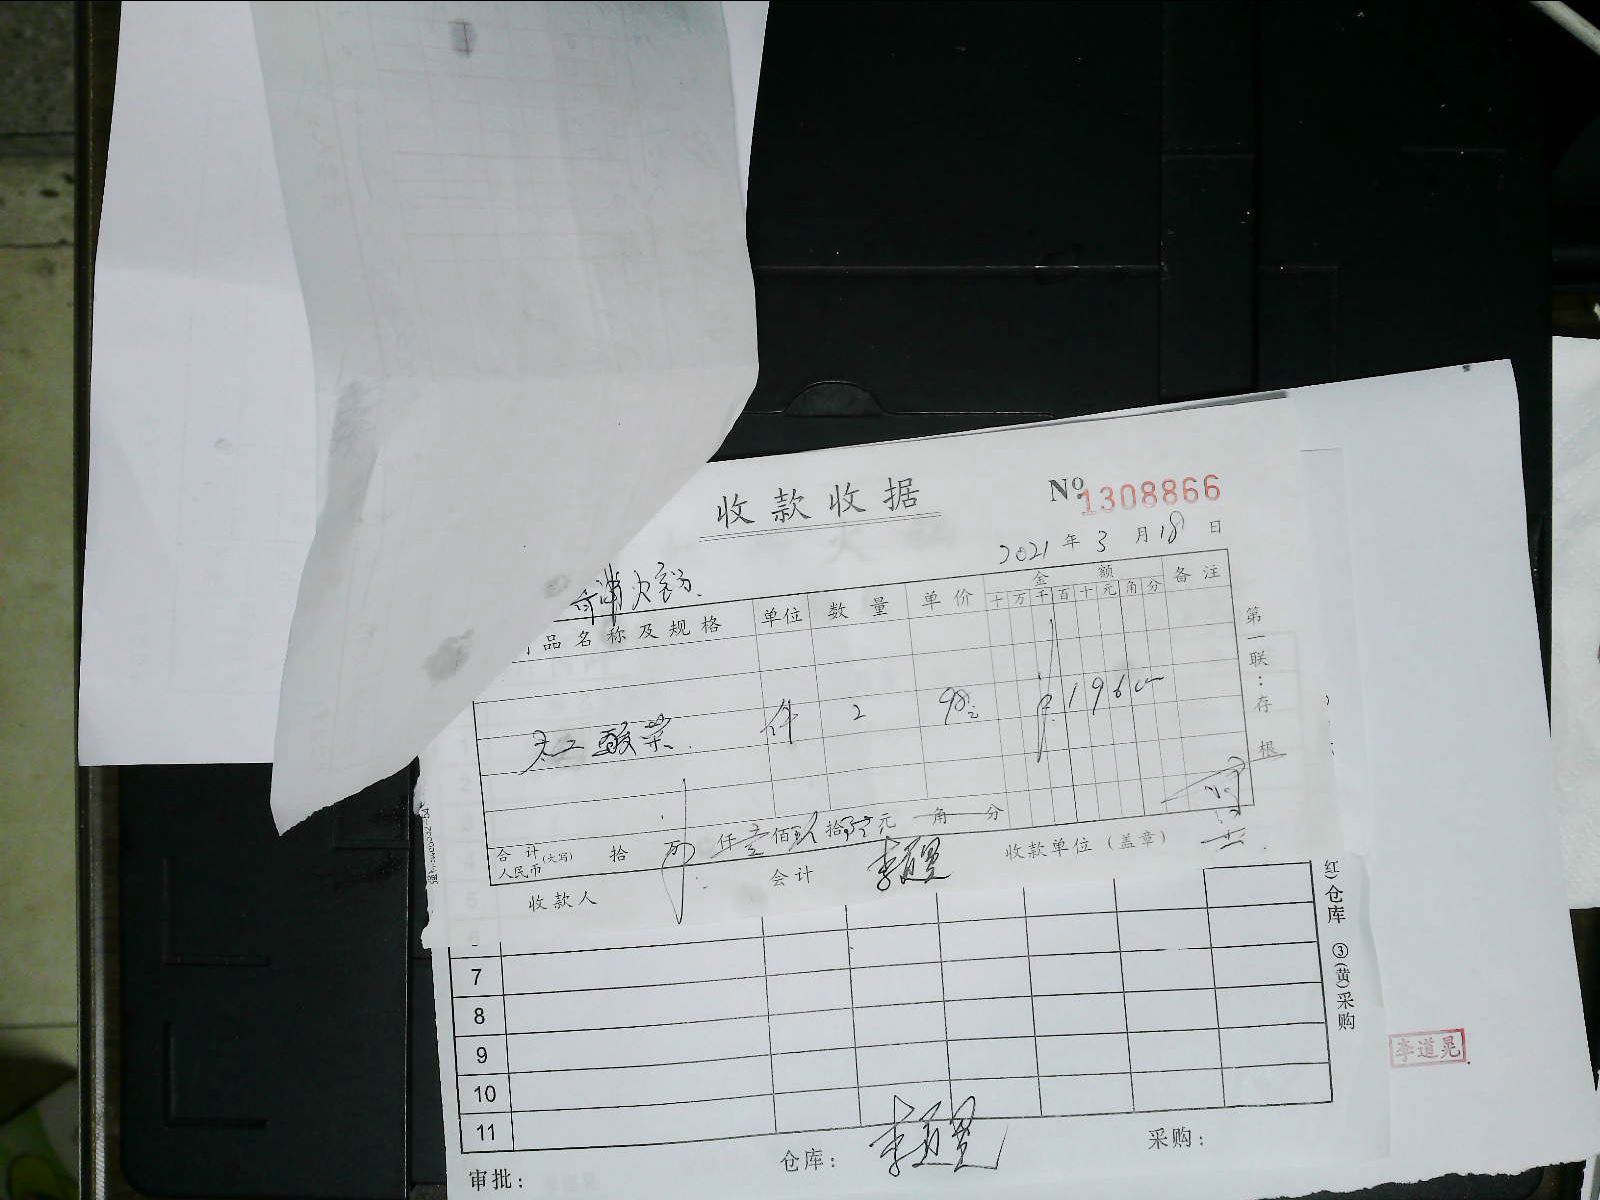 收款收据
No 1308866
2021年3月18日
品名称及规格 单位 数量 单价 金额 备注
十万千百十元角分
酸菜 件 2 98 ¥196
合计 人民币 (大写) 拾 万 仟壹佰玖拾陆元 角 分
收款人 会计 李道晃 收款单位(盖章)
第一联:存根
7
8
9
10
11
审批: 仓库: 李道晃 采购:
红)仓库 ③(黄)采购
李道晃